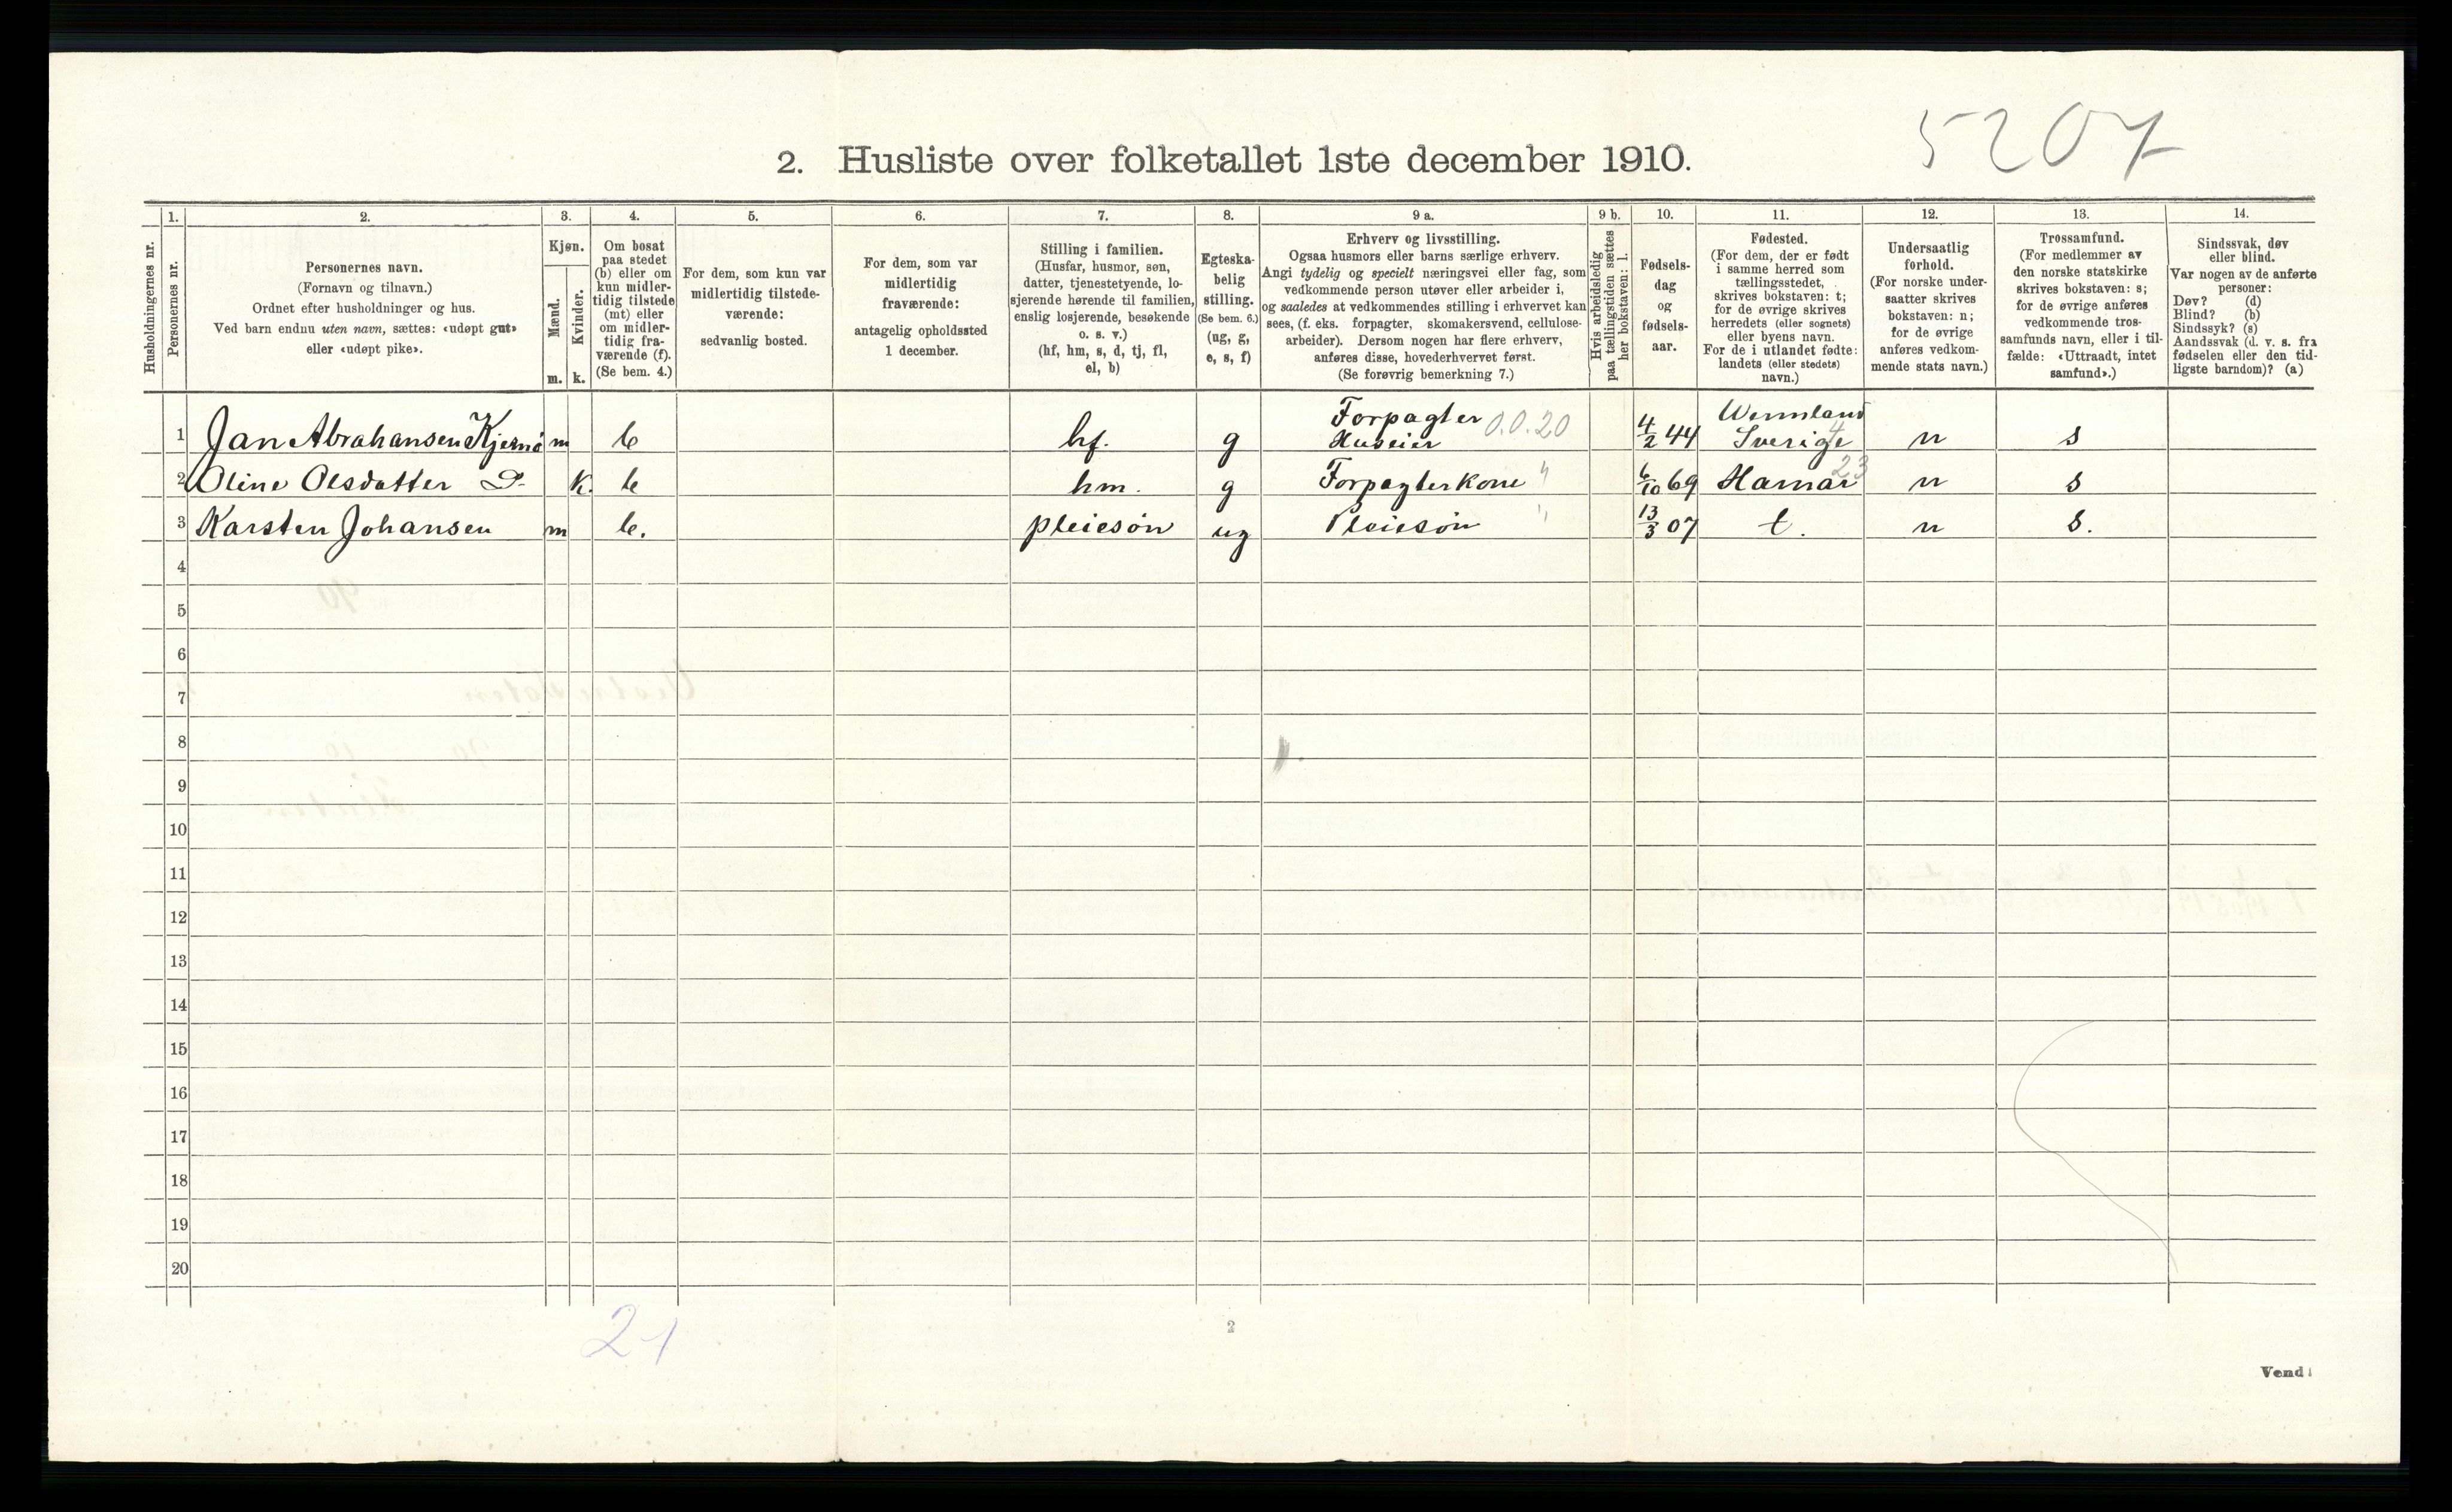 5207
2. Husliste over folketallet 1ste december 1910.
Husholdningernes nr.
1.
Personernes nr.
2.
Personernes navn.
(Fornavn og tilnavn.)
Ordnet efter husholdninger og hus.
Ved barn endnu uten navn, sættes: «udøpt gut»
eller «udøpt pike».
3.
Kjøn.
Mænd.
m.
Kvinder.
k.
4.
Om bosat
paa stedet
(b) eller om
kun midler-
tidig tilstede
(mt) eller
om midler-
tidig fra-
værende (f).
(Se bem. 4.)
5.
For dem, som kun var
midlertidig tilstede-
værende:
sedvanlig bosted.
6.
For dem, som var
midlertidig
fraværende:
antagelig opholdssted
1 december.
7.
Stilling i familien.
(Husfar, husmor, søn,
datter, tjenestetyende, lo-
sjerende hørende til familien,
enslig losjerende, besøkende
o. s. v.)
(hf, hm, s, d, tj, fl,
el, b)
8.
Egteska-
belig
stilling.
(Se bem. 6.)
(ug, g,
e, s, f)
9 a.
Erhverv og livsstilling.
Ogsaa husmors eller barns særlige erhverv.
Angi tydelig og specielt næringsvei eller fag, som
vedkommende person utøver eller arbeider i,
og saaledes at vedkommendes stilling i erhvervet kan
sees, (f. eks. forpagter, skomakersvend, cellulose-
arbeider). Dersom nogen har flere erhverv,
anføres disse, hovederhvervet først.
(Se forøvrig bemerkning 7.)
9 b.
Hvis arbeidsledig
paa tællingstiden sættes
her bokstaven: l.
10.
Fødsels-
dag
og
fødsels-
aar.
11.
Fødested.
(For dem, der er født
i samme herred som
tællingsstedet,
skrives bokstaven: t;
for de øvrige skrives
herredets (eller sognets)
eller byens navn.
For de i utlandet fødte:
landets (eller stedets)
navn.)
12.
Undersaatlig
forhold.
(For norske under-
saatter skrives
bokstaven: n;
for de øvrige
anføres vedkom-
mende stats navn.)
13.
Trossamfund.
(For medlemmer av
den norske statskirke
skrives bokstaven: s;
for de øvrige anføres
vedkommende tros-
samfunds navn, eller i til-
fælde: «Uttraadt, intet
samfund».)
14.
Sindssvak, døv
eller blind.
Var nogen av de anførte
personer:
Døv? (d)
Blind? (b)
Sindssyk? (s)
Aandssvak (d. v. s. fra
fødselen eller den tid-
ligste barndom)? (a)
1 Jan Abrahansen Kjernå m b hf. g Forpagter Huseier 0.0.20 4/2 44 Wermland Sverige 4 n s
2 Oline Olsdatter Do k. b hm. g Forpagterkone " 6/10 69 Hamar 23 n s
3 Karsten Johansen m b. pleiesøn ug Pleiesøn " 13/3 07 t. n s.
4
5
6
7
8
9
10
11
12
13
14
15
16
17
18
19
20
21
2
Vend!